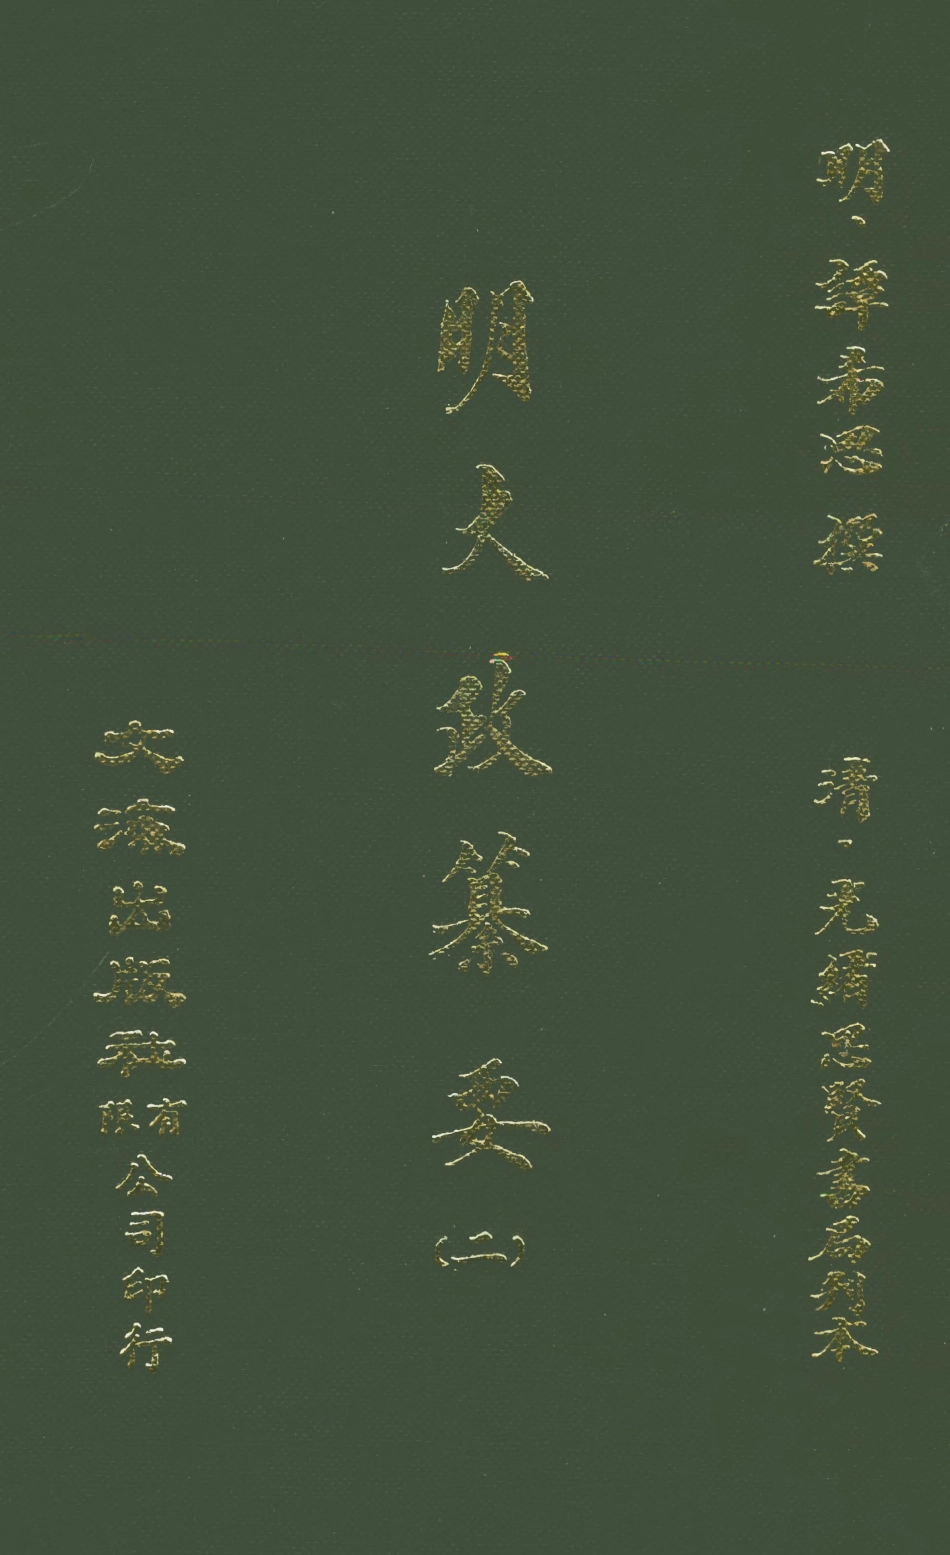 明・譚希思 撰　清・光緒思賢書局刊本
明大政纂要(二)
文海出版社有限公司印行